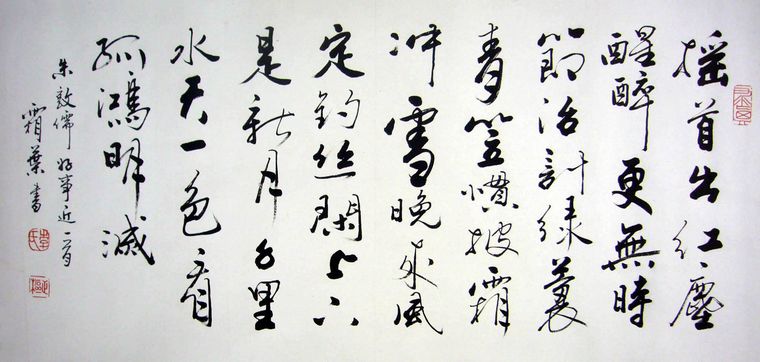 摇首出红塵
醒醉更無時
節活計绿蓑
青笠慣披霜
冲雪晚來風
定釣丝閑上下
是新月千里
水天一色看
孤鴻明滅
朱敦儒 好事近一首
霜葉書